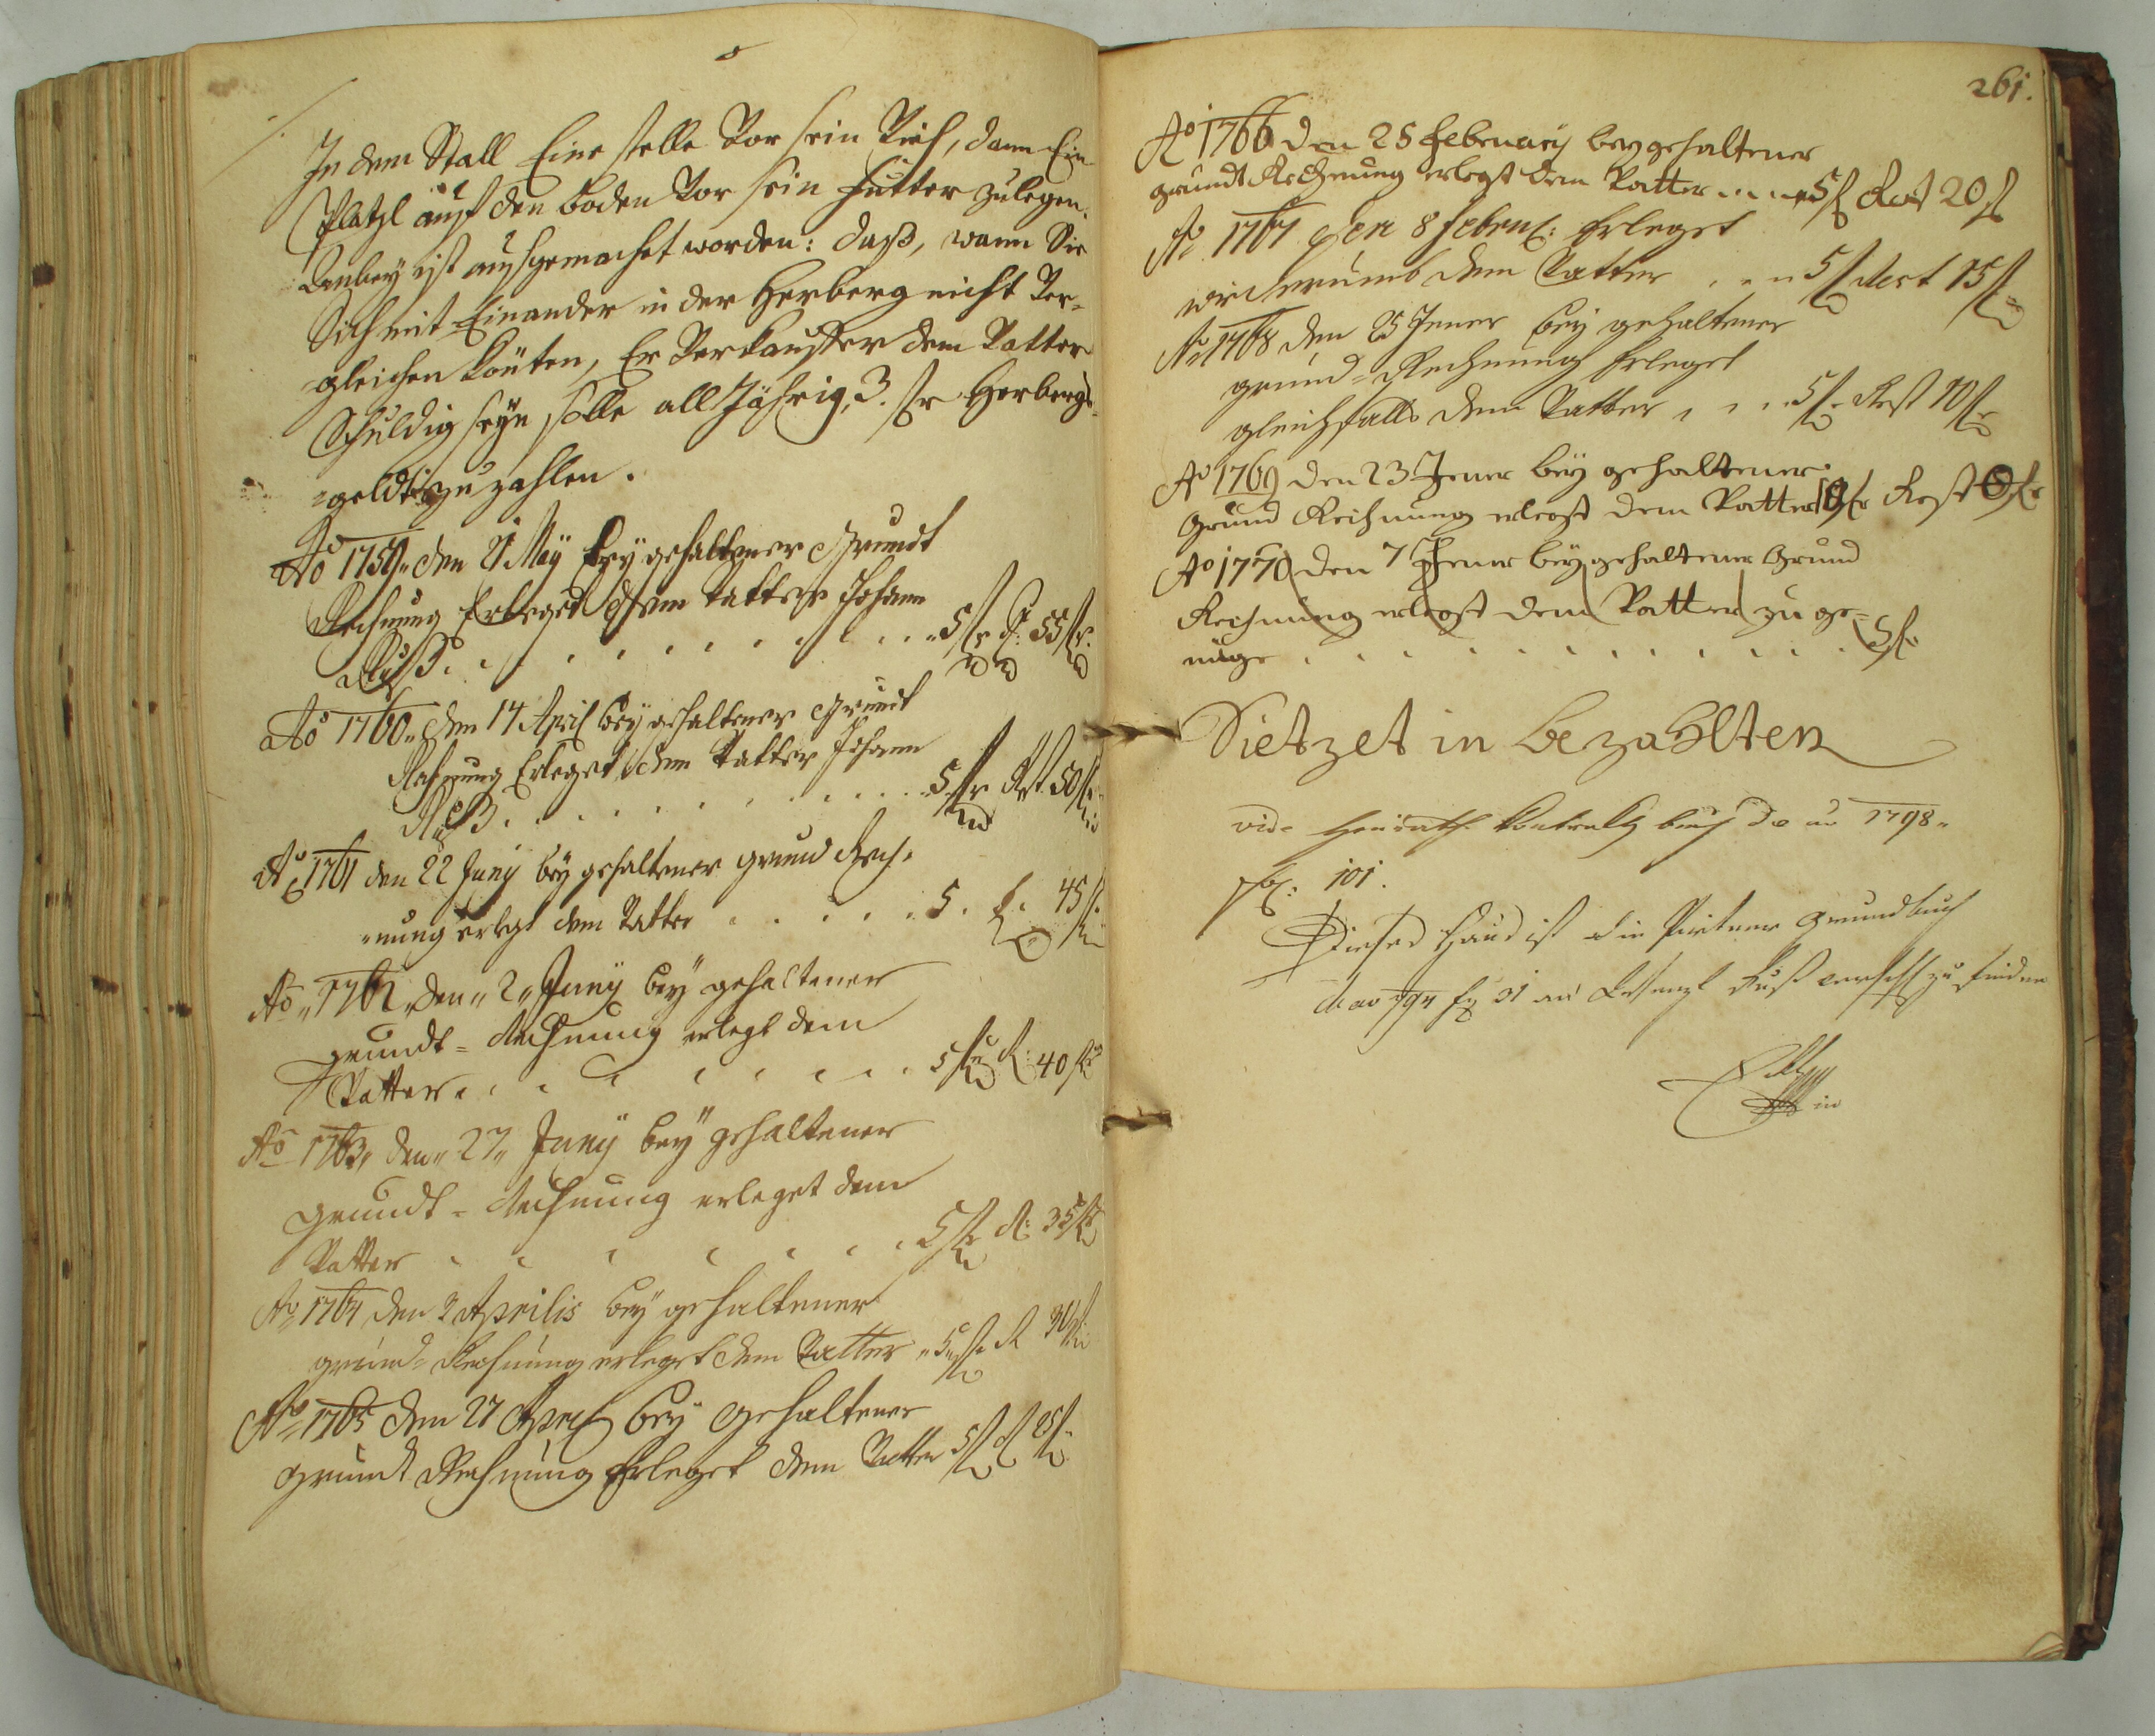 In dem Stall Eine stelle Vor sein Vieh, dann Ein
Platzl auf den boden Vor sein Futter zulegen.
Darbey ist ausgemachet worden: daß, wann Sie
Sich mit Einander in der Herberg nicht Ver-
gleichen könten, Er Verkauffer dem Vatter
Schuldig seÿn solle all Jährig 3. fr Herbergs-
geldt zu zahlen.
Ao 1759 den 21 Maÿ beÿ gehaltener Grundt
Rechnung Erleget dem Vatter Johann
5 fr R: 55 fr
Ao 1760 den 14 April beÿ gehaltener Grundt
Rechnung Erleget dem Vatter Johann
5 fr Rest 50 fr
Ao 1761 den 22 Junÿ beÿ gehaltener grund Rech-
nung erlegt dem Vatter 5 f. 45 f.
Ao 1762 den 2 Junÿ beÿ gehaltener
grundt-Rechnung erlegt dem
Vatter 5 fr R 40 fr
Ao 1763 den 27 Junÿ beÿ gehaltener
grundt-Rechnung erleget dem
Vatter 5 fr R: 35 fr
Ao 1764 den 2 Aprilis beÿ gehaltener
grund-Rechnung erleget dem Vatter 5 fr R 30 fr
Ao 1765 den 27 April beÿ gehaltener
grundt Rechnung Erleget dem Vatter 5 fr R 25 fr
261.
Ao 1766 den 25 Februarÿ beÿ gehaltener
grundt Rechnung erlegt dem Vatter 5 f Rest 20 f
Ao 1767 den 8 Febru: Erleget
widerumb dem Vatter 5 f Rest 15 f
Ao 1768 den 25 Jener beÿ gehaltener
grund-Rechnung Erleget
gleichfalls dem Vatter 5 f Rest 10 f
Ao 1769 den 23 Jener beÿ gehaltener
Grund Rechnung erlegt dem Vatter fr Rest fr
Ao 1770 den 7 Jener beÿ gehaltener Grund
Rechnung erlegt dem Vatter zu ge-
nüge 5 f
Sietzet in bezahlten
vide Heurath Contracts buch de ao 1798
fol: 101.
Dieses Haus ist Grundbuch
fol 31 zu finden